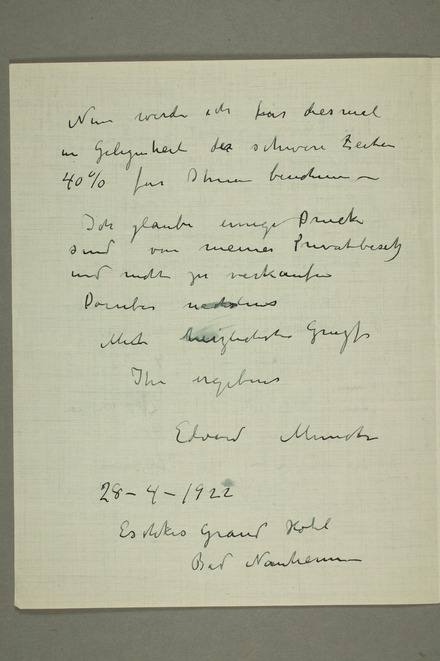 Nun werde ich fur diesmal
in Gelegenheit der schwere Zeiten
40% fur Ihnen
Ich glaube einige Drucke
sind von meiner Privatbesitz
und nicht zu verkaufen
Daruber
Mit herzlichsten
Ihr ergebens
Edvard Munch
28-4-1922
Grand Hotel
Bad Nauheim